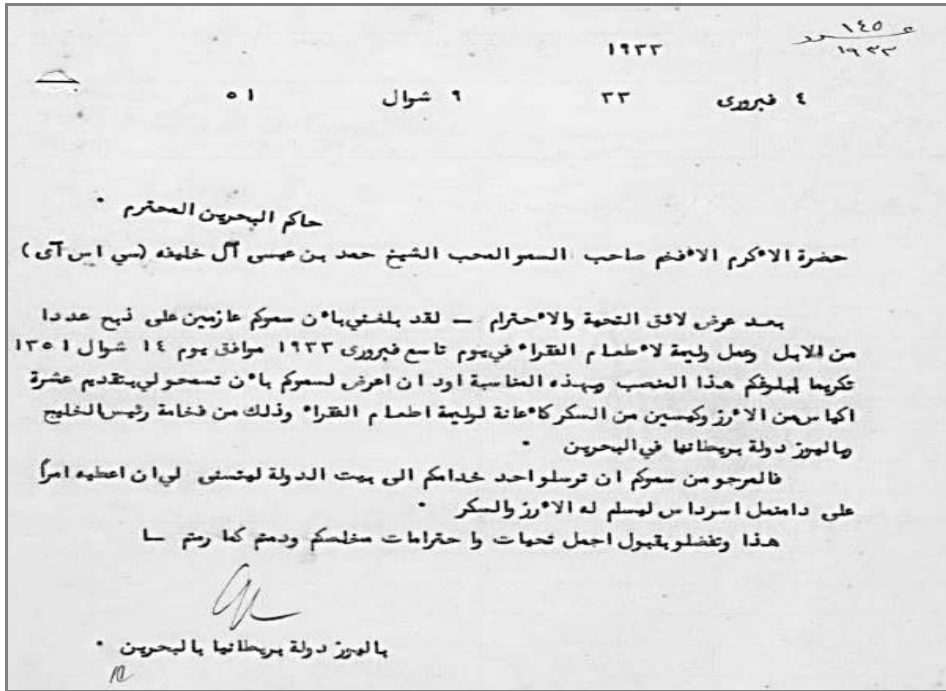 ١٤٥
١٩٣٣
١٩٣٣
٤ فبرورى ٣٣ ٩ شوال ٥١
حاكم البحرين المحترم ٠
حضرة الاءكرم الاءفخم صاحب السمو المحب الشيخ حمد بن عيسى آل خليفه (سي اس آى)
بعد عرض لائق التحية والاءحترام — لقد بلغني باءن سموكم عازمين على ذبح عددا
من الابل وعمل وليمة لاءطعام الفقراء في يوم تاسع فبرورى ١٩٣٣ موافق يوم ١٤ شوال ١٣٥١
تكريما لبلوغكم هذا المنصب وبهذه المناسبة اود ان اعرض لسموكم باءن تسمحو لي بتقديم عشرة
اكياس من الاءرز وكيسين من السكر كاءعانة لوليمة اطعام الفقراء وذلك من فخامة رئيس الخليج
وباليوز دولة بريطانيا في البحرين ٠
فالمرجو من سموكم ان ترسلو احد خدامكم الى بيت الدولة ليتسنى لي ان اعطيه امراً
على دامتمل اسرداس ليسلم له الاءرز والسكر ٠
هذا وتفضلو بقبول اجمل تحيات واحترامات مخلصكم ودمتم كما رمتم
باليوز دولة بريطانيا بالبحرين ٠